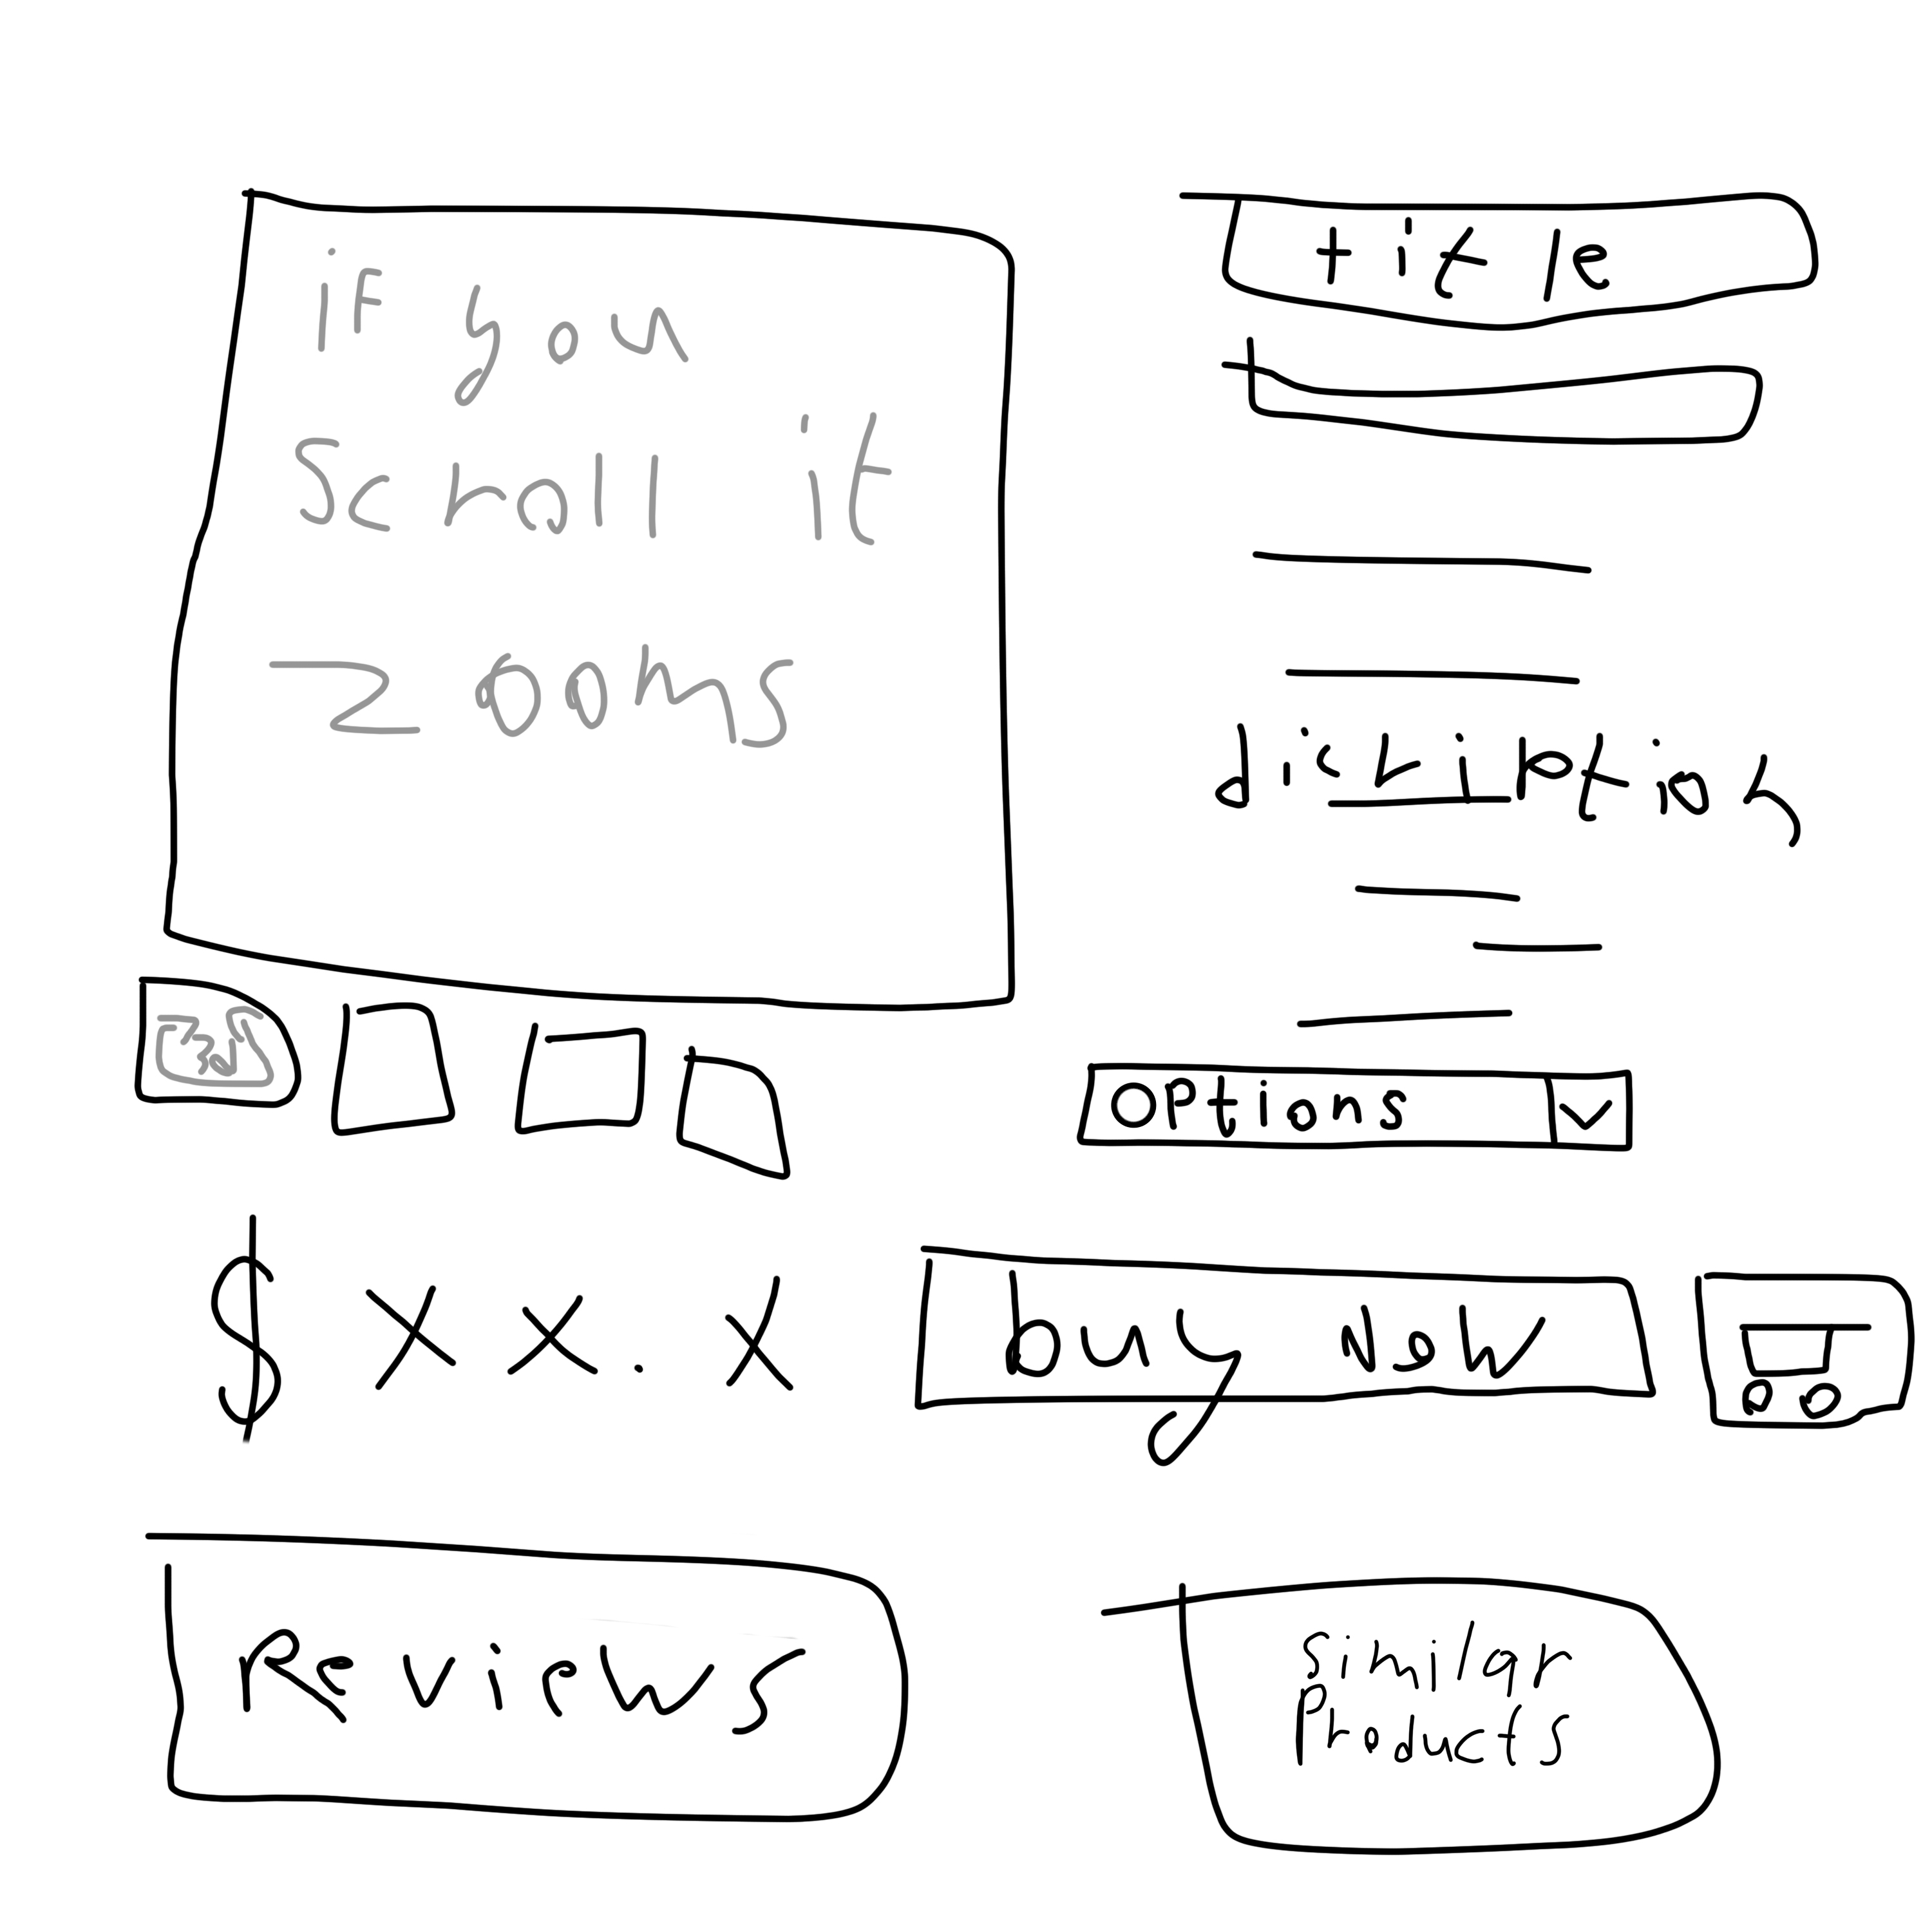 if you
scroll it
zooms
title
diskiption
options
$ x x . x
buy now
Reviews
similar
products